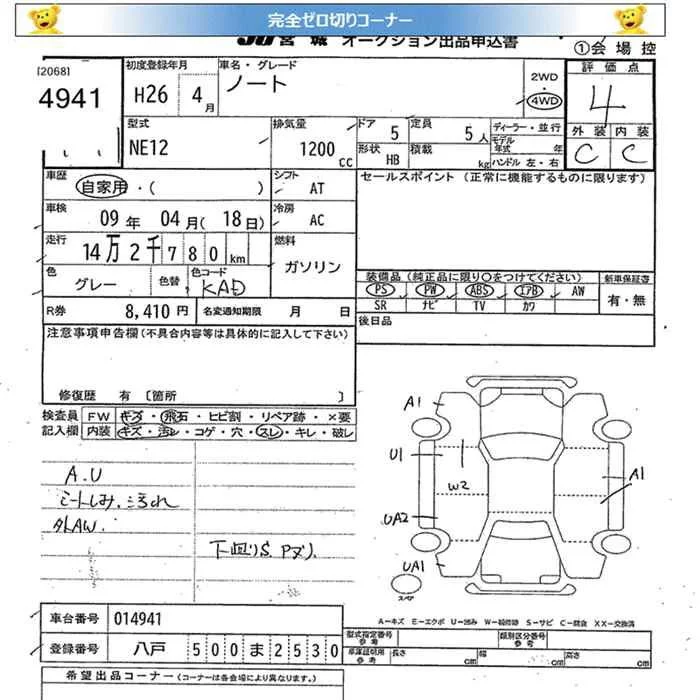 完全ゼロ切りコーナー
JU宮城 オークション出品申込書 ①会場控
[2068]
4941
初度登録年月 H26 4月
車名・グレード ノート
2WD・4WD
評価点 4
外装 C 内装 C
型式 NE12
排気量 1200 CC
ドア 5 定員 5人
形状 HB 積載 kg
ディーラー・並行
モデル年式 年
ハンドル 左・右
車歴 自家用・( )
シフト AT
セールスポイント (正常に機能するものに限ります)
車検 09年 04月(18日)
冷房 AC
走行 14万2千780km
燃料 ガソリン
色 グレー 色替 色コード KAD
装備品(純正品に限り○をつけてください) 新車保証書
PS PW ABS エアB AW 有・無
SR ナビ TV カワ
R券 8,410円 名変通知期限 月 日
後日品
注意事項申告欄(不具合内容等は具体的に記入して下さい)
修復歴 有 [箇所 ]
検査員記入欄 FW キズ・飛石・ヒビ割・リペア跡・×要
内装 キズ・汚レ・コゲ・穴・スレ・キレ・破レ
A.U
シートしみ.汚れ
外AW.
下廻りS.Pヌリ.
A1
U1
W2
A1
UA2
UA1
スペア
A−キズ E−エクボ U−凹み W−補修跡 S−サビ C−腐食 XX−交換済
車台番号 014941
登録番号 八戸 500ま2530
型式指定番号 参考 類別区分番号 参考
車庫証明用 参考 長さ cm 幅 cm 高さ cm
希望出品コーナー (コーナーは各会場により異なります)